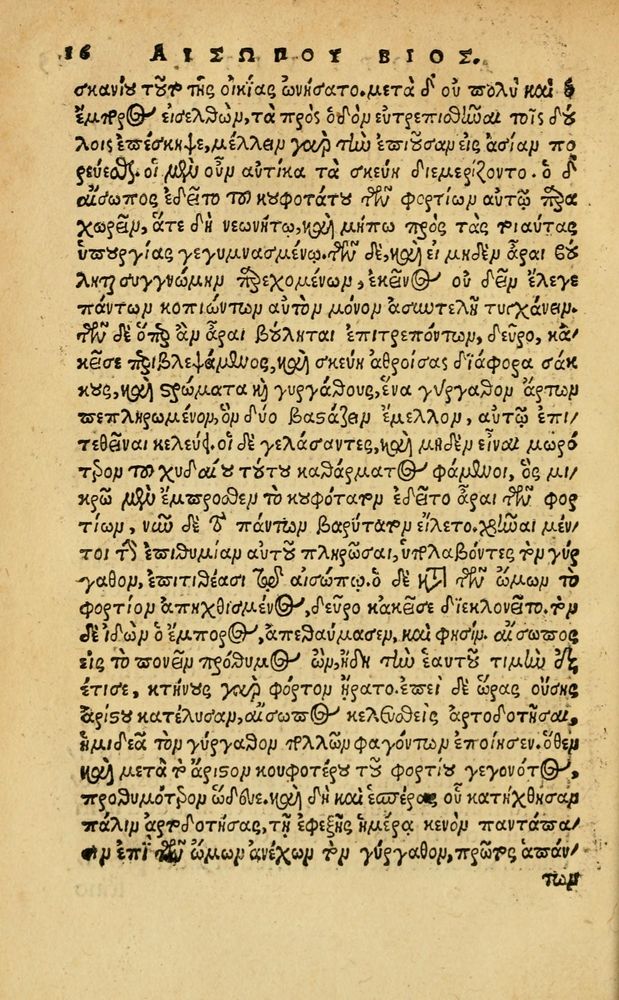 16 ΑΙΣΩΠΟΥ ΒΙΟΣ.
σκανίου τοῦτον τῆς οἰκίας ὠνήσατο. μετὰ δ' οὐ πολὺ καὶ ὁ
ἔμπορος εἰσελθὼν, τὰ πρὸς ὁδὸν εὐτρεπισθῆναι τοῖς δού
λοις ἐπέσκηψε, μέλλειν γὰρ τὴν ἐπιοῦσαν εἰς ἀσίαν πο
ρεύεσθαι. οἱ μὲν οὖν αὐτίκα τὰ σκεύη διεμερίζοντο. ὁ δ'
αἴσωπος ἐδεῖτο τὸ κουφότατον τῶν φορτίων αὐτῷ παρα
χωρεῖν, ἅτε δὴ νεωνήτῳ, καὶ μήπω πρὸς τὰς τοιαύτας
ὑπουργίας γεγυμνασμένῳ. τῶν δὲ, καὶ εἰ μηδὲν ἆραι βού
λητο συγγνώμην παρεχομένων, ἐκεῖνος οὐ δεῖν ἔλεγε
πάντων κοπιώντων αὐτὸν μόνον ἀσυντελῆ τυγχάνειν.
τῶν δὲ ὅπερ ἂν ἆραι βούληται ἐπιτρεπόντων, δεῦρο, κἀ/
κεῖσε περιβλεψάμενος, καὶ σκεύη ἀθροίσας διάφορα σάκ
κους, καὶ στρώματα καὶ γυργάθους, ἕνα γύργαθον ἄρτων
πεπληρωμένον, ὃν δύο βαστάζειν ἔμελλον, αὐτῷ ἐπι/
τεθεῖναι κελεύει. οἱ δὲ γελάσαντες, καὶ μηδὲν εἶναι μωρό
τερον τοῦ χυδαίου τούτου καθάρματος φάμενοι, ὃς μι/
κρῷ μὲν ἔμπροσθεν τὸ κουφότατον ἐδεῖτο ἆραι τῶν φορ
τίων, νῦν δὲ τὸ πάντων βαρύτατον εἵλετο. χρῆναι μέν/
τοι τὴν ἐπιθυμίαν αὐτοῦ πληρῶσαι, ὑπολαβόντες τὸν γύρ
γαθον, ἐπιτιθέασι τῷ αἰσώπῳ. ὁ δὲ κατὰ τῶν ὤμων τὸ
φορτίον ἀπηχθισμένος, δεῦρο κἀκεῖσε διεκλονεῖτο. τὸν
δὲ ἰδὼν ὁ ἔμπορος, ἀπεθαύμασεν, καὶ φησίν. αἴσωπος
εἰς τὸ πονεῖν πρόθυμος ὢν, ἤδη τὴν ἑαυτοῦ τιμὴν ἐξ
έτισε, κτήνους γὰρ φόρτον ἤρατο. ἐπεὶ δὲ ὥρας οὔσης
ἀρίστου κατέλυσαν, αἴσωπος κελευσθεὶς ἀρτοδοτῆσαι,
ἡμιδεᾶ τὸν γύργαθον πολλῶν φαγόντων ἐποίησεν. ὅθεν
καὶ μετὰ τὸ ἄριστον κουφοτέρου τοῦ φορτίου γεγονότος,
προθυμότερον ὥδευε. καὶ δὴ καὶ ἑσπέρας οὗ κατήχθησαν
πάλιν ἀρτοδοτήσας, τῇ ἐφεξῆς ἡμέρᾳ κενὸν παντάπα/
σιν ἐπὶ τῶν ὤμων ἀνέχων τὸν γύργαθον, πρῶτος ἁπάν/
των